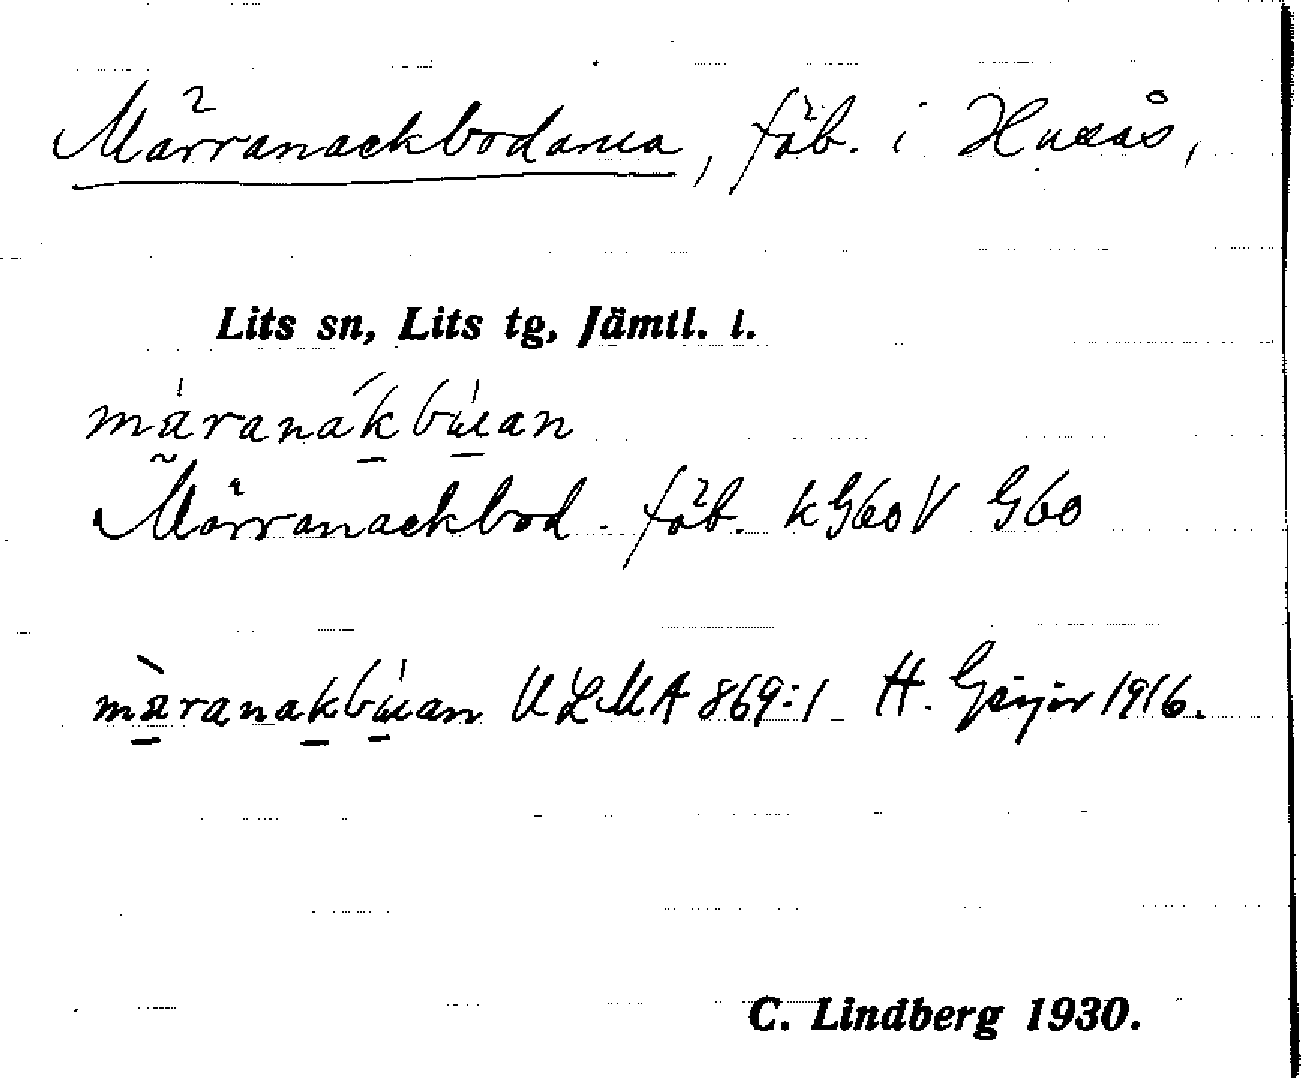 Märranackbodarna, fäb. i Husås,
Lits sn, Lits tg, Jämtl. l.
märanákbúan
Märranackbod. fäb. k G60 V G60
màranakbúan ULMA 869:1 H. Geijer 1916.
C. Lindberg 1930.